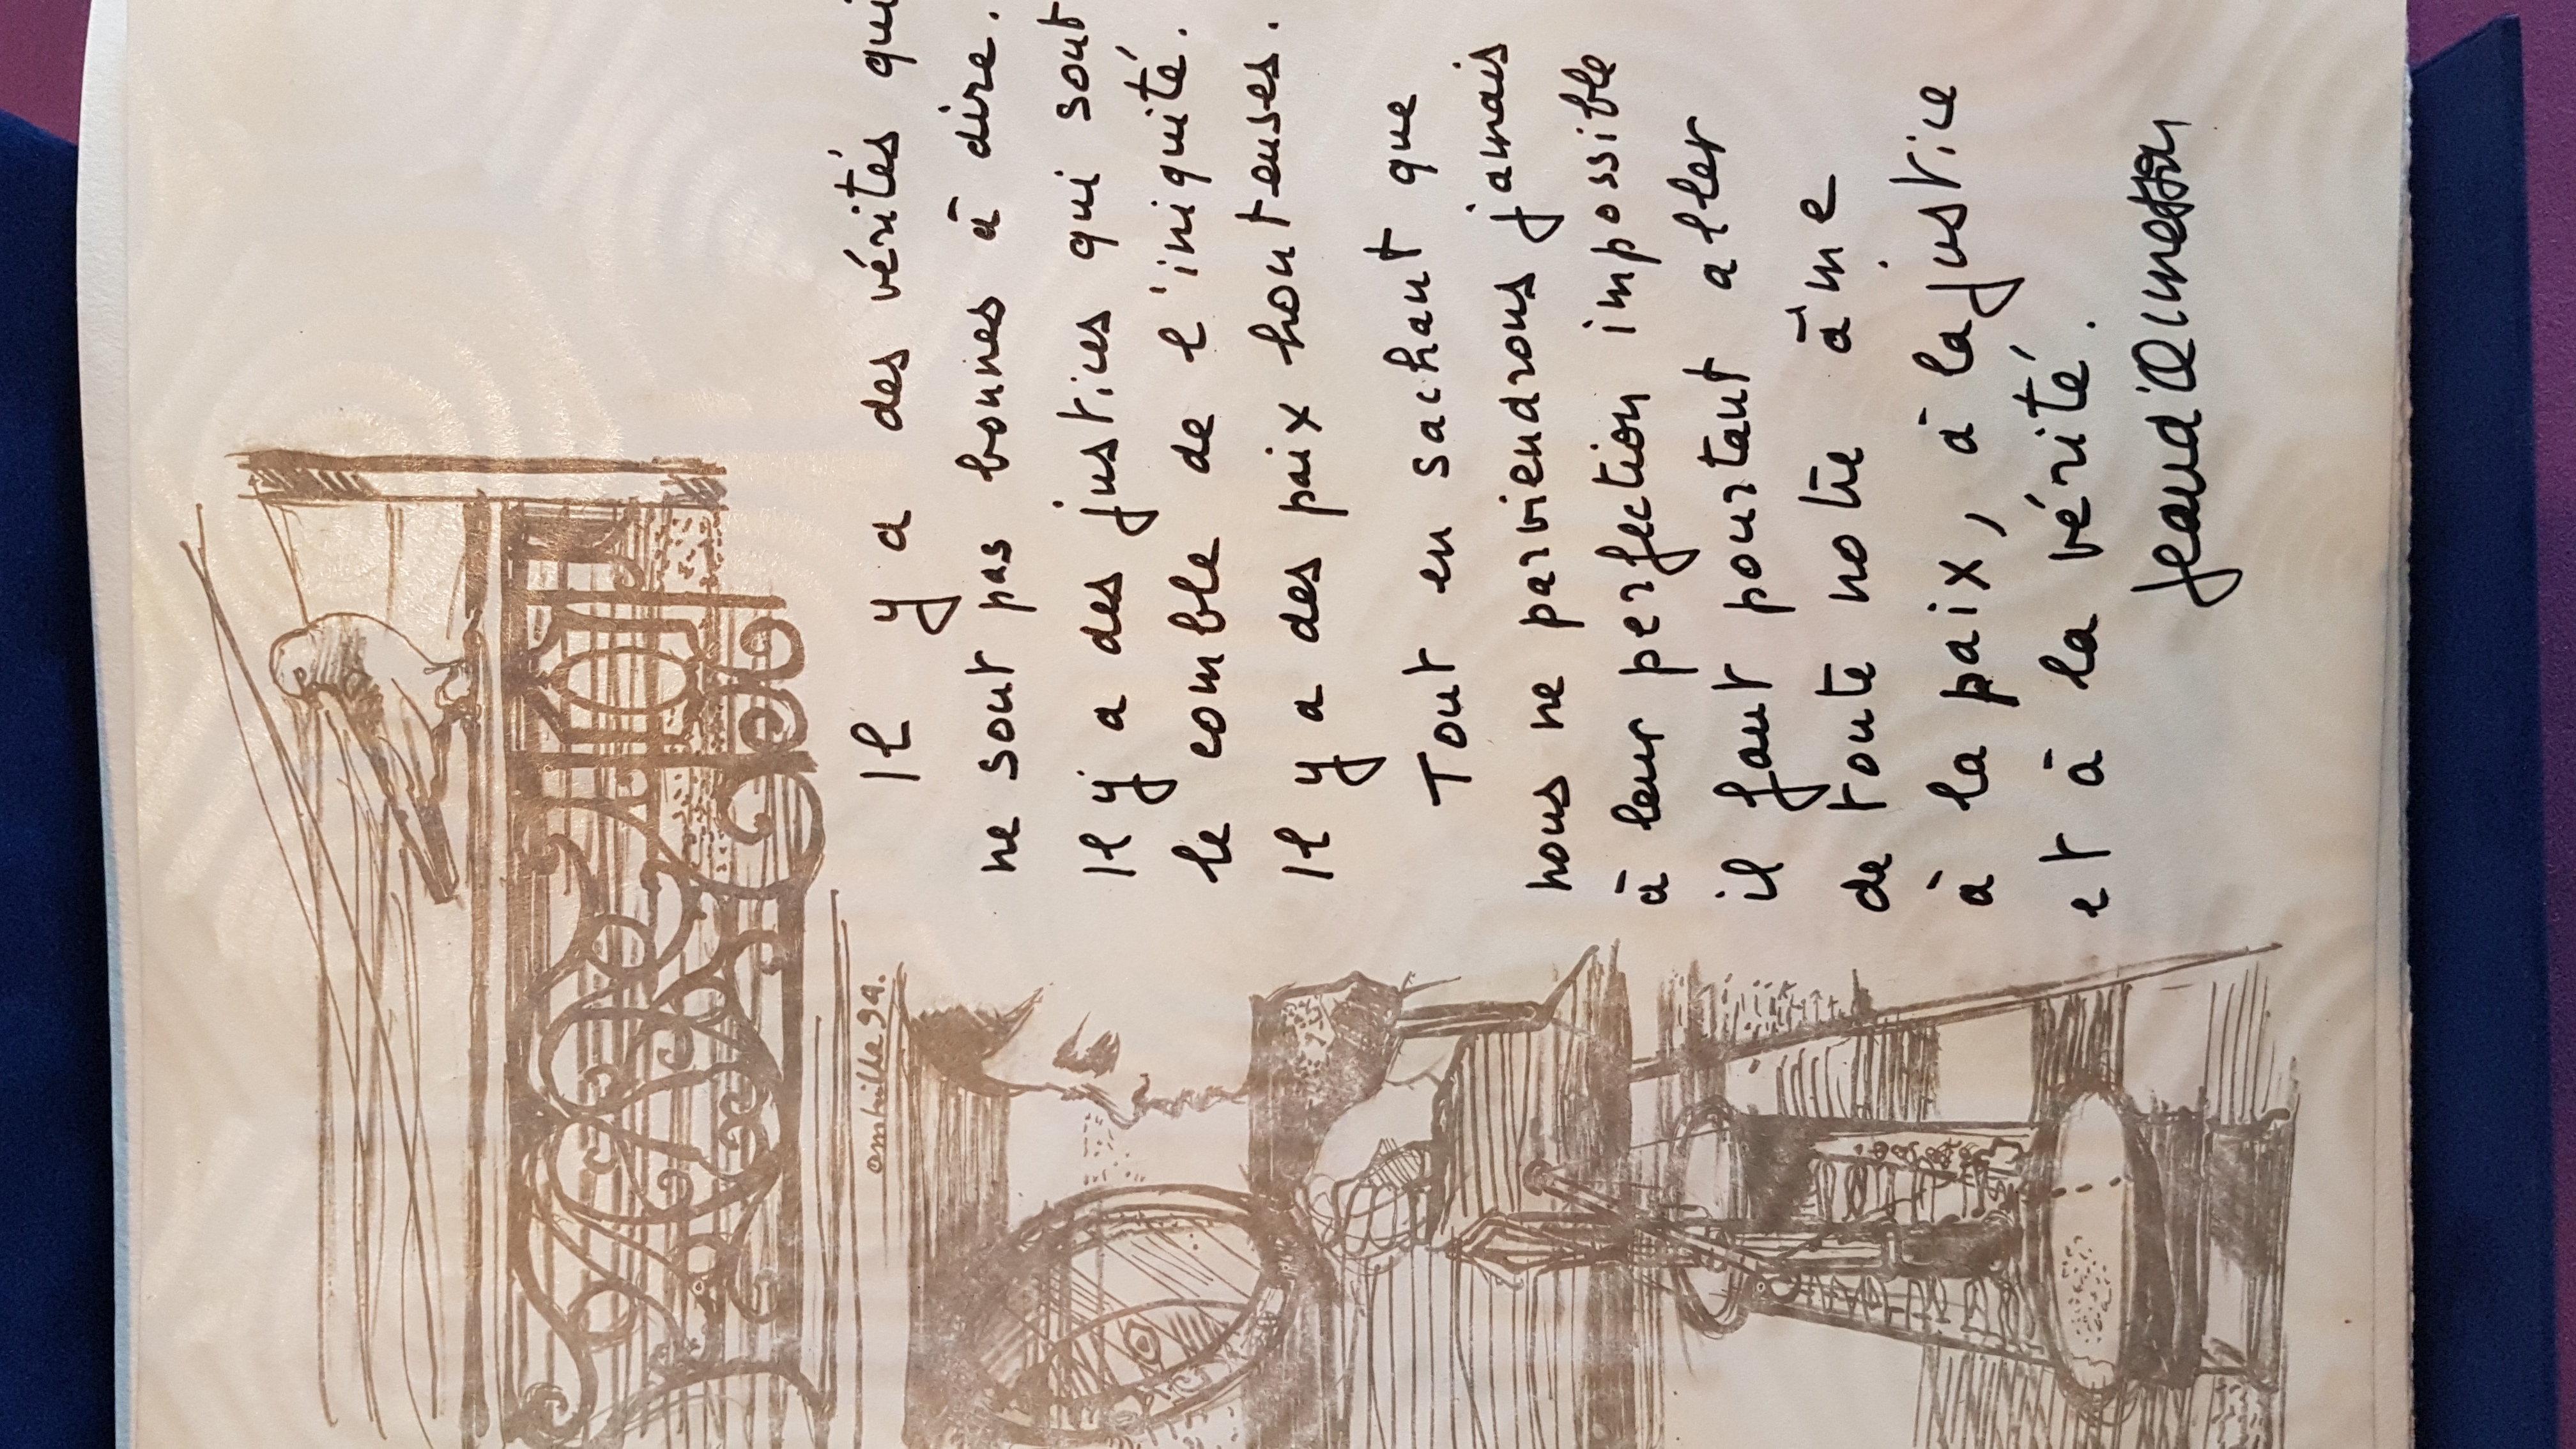 Il y a des vérités qui
ne sont pas bonnes à dire.
Il y a des justices qui sont
le comble de l'iniquité.
Il y a des paix honteuses.
Tout en sachant que
nous ne parviendrons jamais
à leur perfection impossible
il faut pourtant aller
de toute notre âme
à la paix, à la justice
et à la vérité.
Jean d'Ormesson